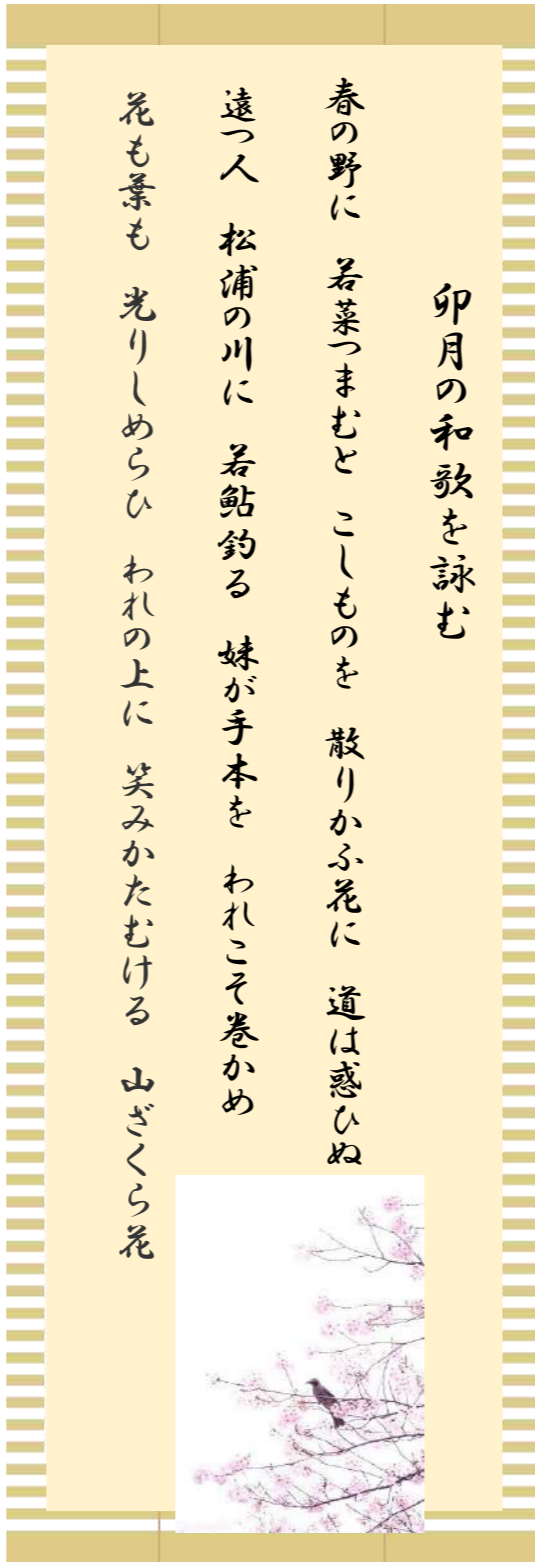 卯月の和歌を詠む
春の野に　若菜つまむと　こしものを　散りかふ花に　道は惑ひぬ
遠つ人　松浦の川に　若鮎釣る　妹が手本を　われこそ巻かめ
花も葉も　光りしめらひ　われの上に　笑みかたむける　山ざくら花